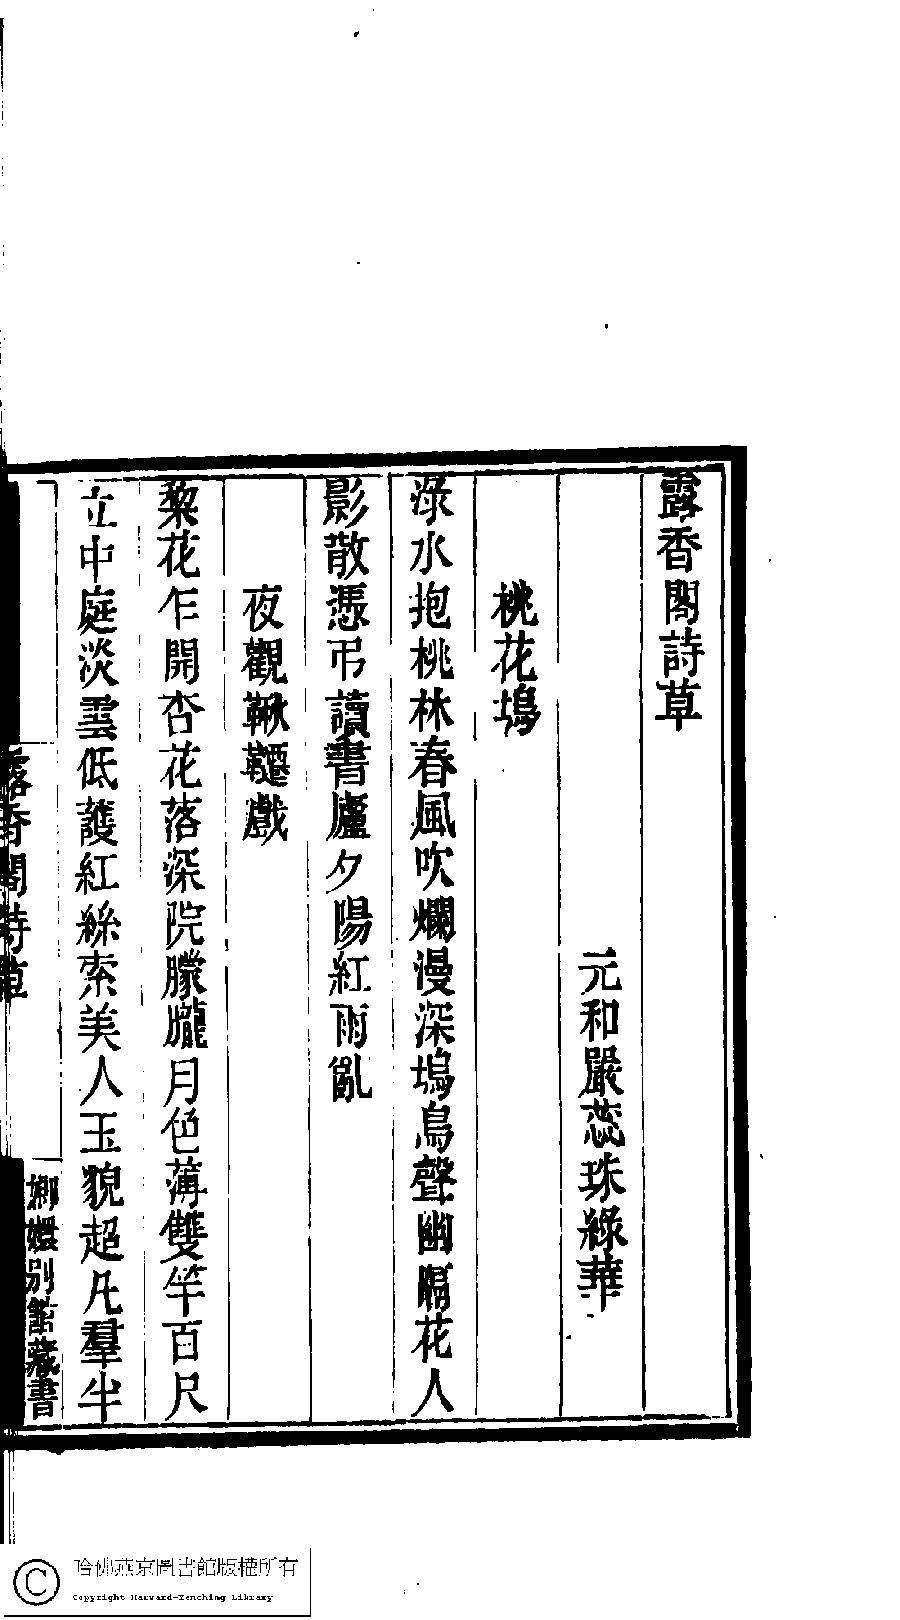 露香閣詩草
元和嚴蕊珠綠華
桃花塢
渌水抱桃林春風吹爛漫深塢鳥聲幽隔花人
影散憑弔讀書廬夕陽紅雨亂
夜觀鞦韆戲
棃花乍開杏花落深院朦朧月色薄雙竿百尺
立中庭淡雲低護紅絲索美人玉貌超凡羣半
露香閣詩草
嫏嬛別館藏書
哈佛燕京圖書館版權所有
Copyright Harvard-Yenching Library